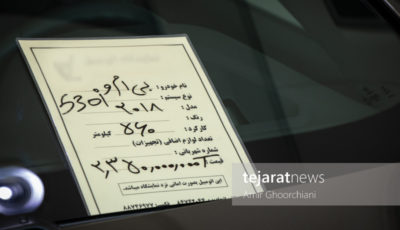 نام خودرو : بی ام و
نوع سیستم : 530i
مدل : ۲۰۱۸
رنگ :
کارکرد : ۵۶۰ کیلومتر
تعداد لوازم اضافی (تجهیزات) :
شماره شهربانی :
قیمت
این اتومبیل بصورت امانی نزد نمایشگاه میباشد.
tejaratnews
Amir Ghoorchiani